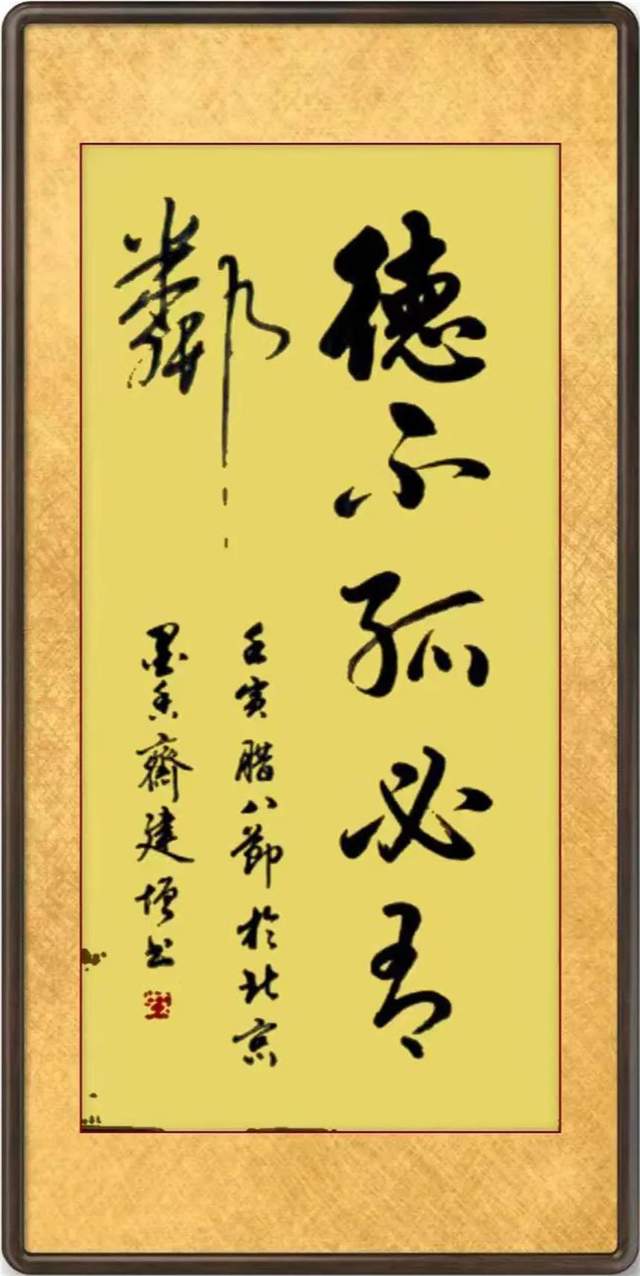 德不孤必有
鄰
壬寅腊八節於北京
墨香齋建增书